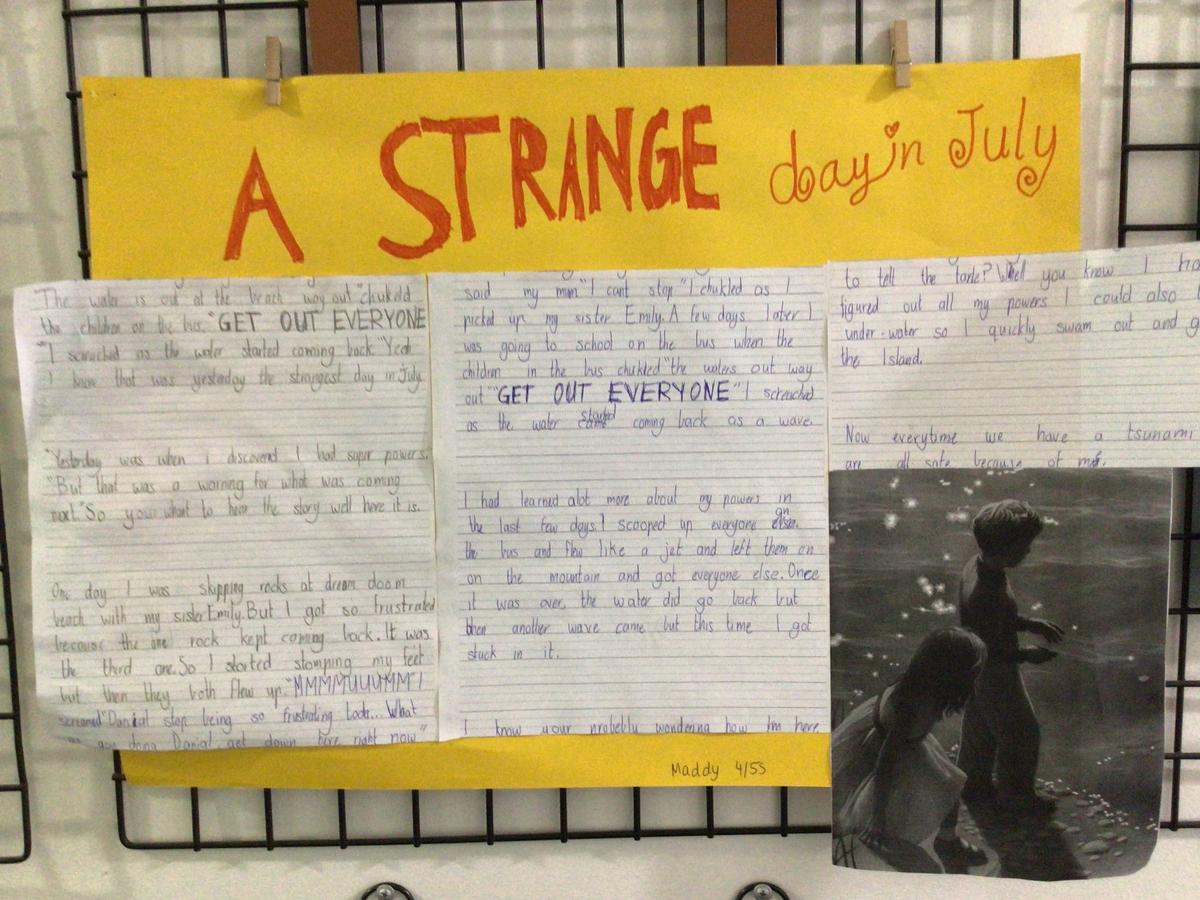 A STRANGE day in July
The water is out at the beach way out" chukeld
the children on the bus. "GET OUT EVERYONE
"I screached as the water started coming back. "Yeah
I know that was yesterday the strangest day in July
"Yesterday was when i discoverd I had super powers.
"But that was a warning for what was coming
next." So your want to hear the story well here it is.
One day I was skipping rocks at dream doom
beach with my sister Emily. But I got so frustrated
because the one rock kept coming back. It was
the third one. So I started stomping my feet
but then they both flew up. "MMMMUUUMM" I
screamed "Danial stop being so frustrating look... What
are you doing Danial get down here right now"
said my mum "I cant stop" I chukled as I
picked up my sister Emily. A few days later I
was going to school on the bus when the
children in the bus chukled "the waters out way
out" "GET OUT EVERYONE" I screached
as the water started coming back as a wave.
I had learned alot more about my powers in
the last few days. I scooped up everyone on
the bus and flew like a jet and left them on
on the mountain and got everyone else. Once
it was over, the water did go back but
then another wave came but this time I got
stuck in it.
I know your probebly wondering how Im here
to tell the tale? Well you know I
figured out all my powers I could also
under-water so I quickly swam out and
the Island.
Now everytime we have a tsunami
are all safe because of me.
Maddy 4/5S